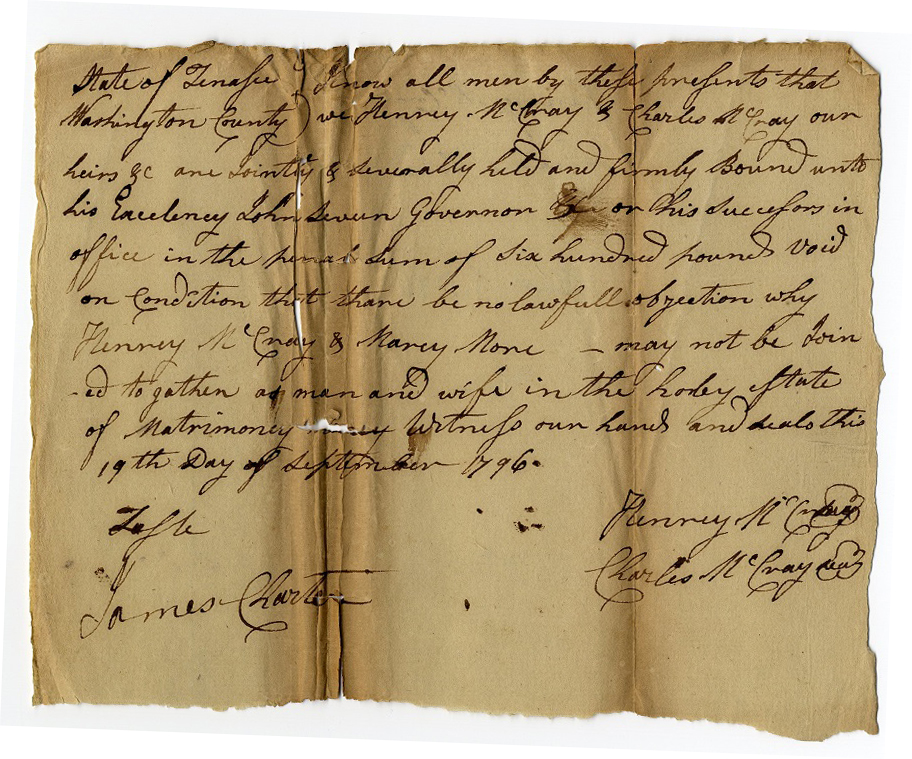 State of Tenasee } Know all men by these presents that
Washington County } we Henrey McCray & Charles McCray our
heirs &c are Jointly & Severally held and firmly Bound unto
his Excelency John Sevier Governor or his successors in
office in the penal sum of Six hundred pounds Void
on Condition that thare be no lawfull objection why
Henrey McCray & Marcy More - may not be Join
-ed to gather as man and wife in the holey State
of Matrimoney Witness our hands and seals this
19th Day of September 1796.
Teste
Henrey McCray
James Charter
Charles McCray seal